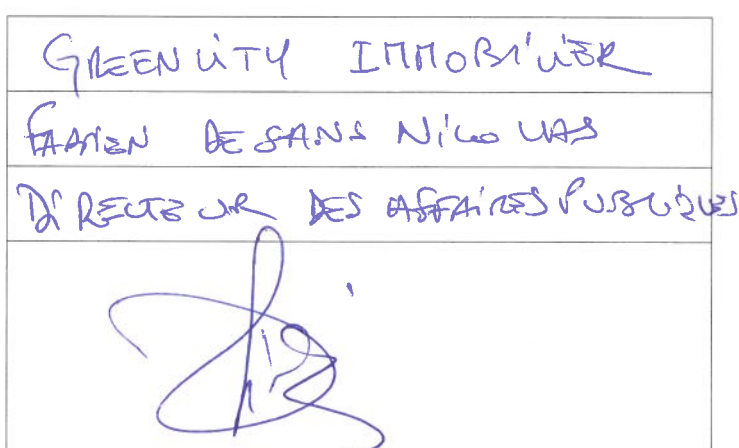 GREENCITY IMMOBILIER
FABIEN DE SANS NICOLAS
DIRECTEUR DES AFFAIRES PUBLIQUES